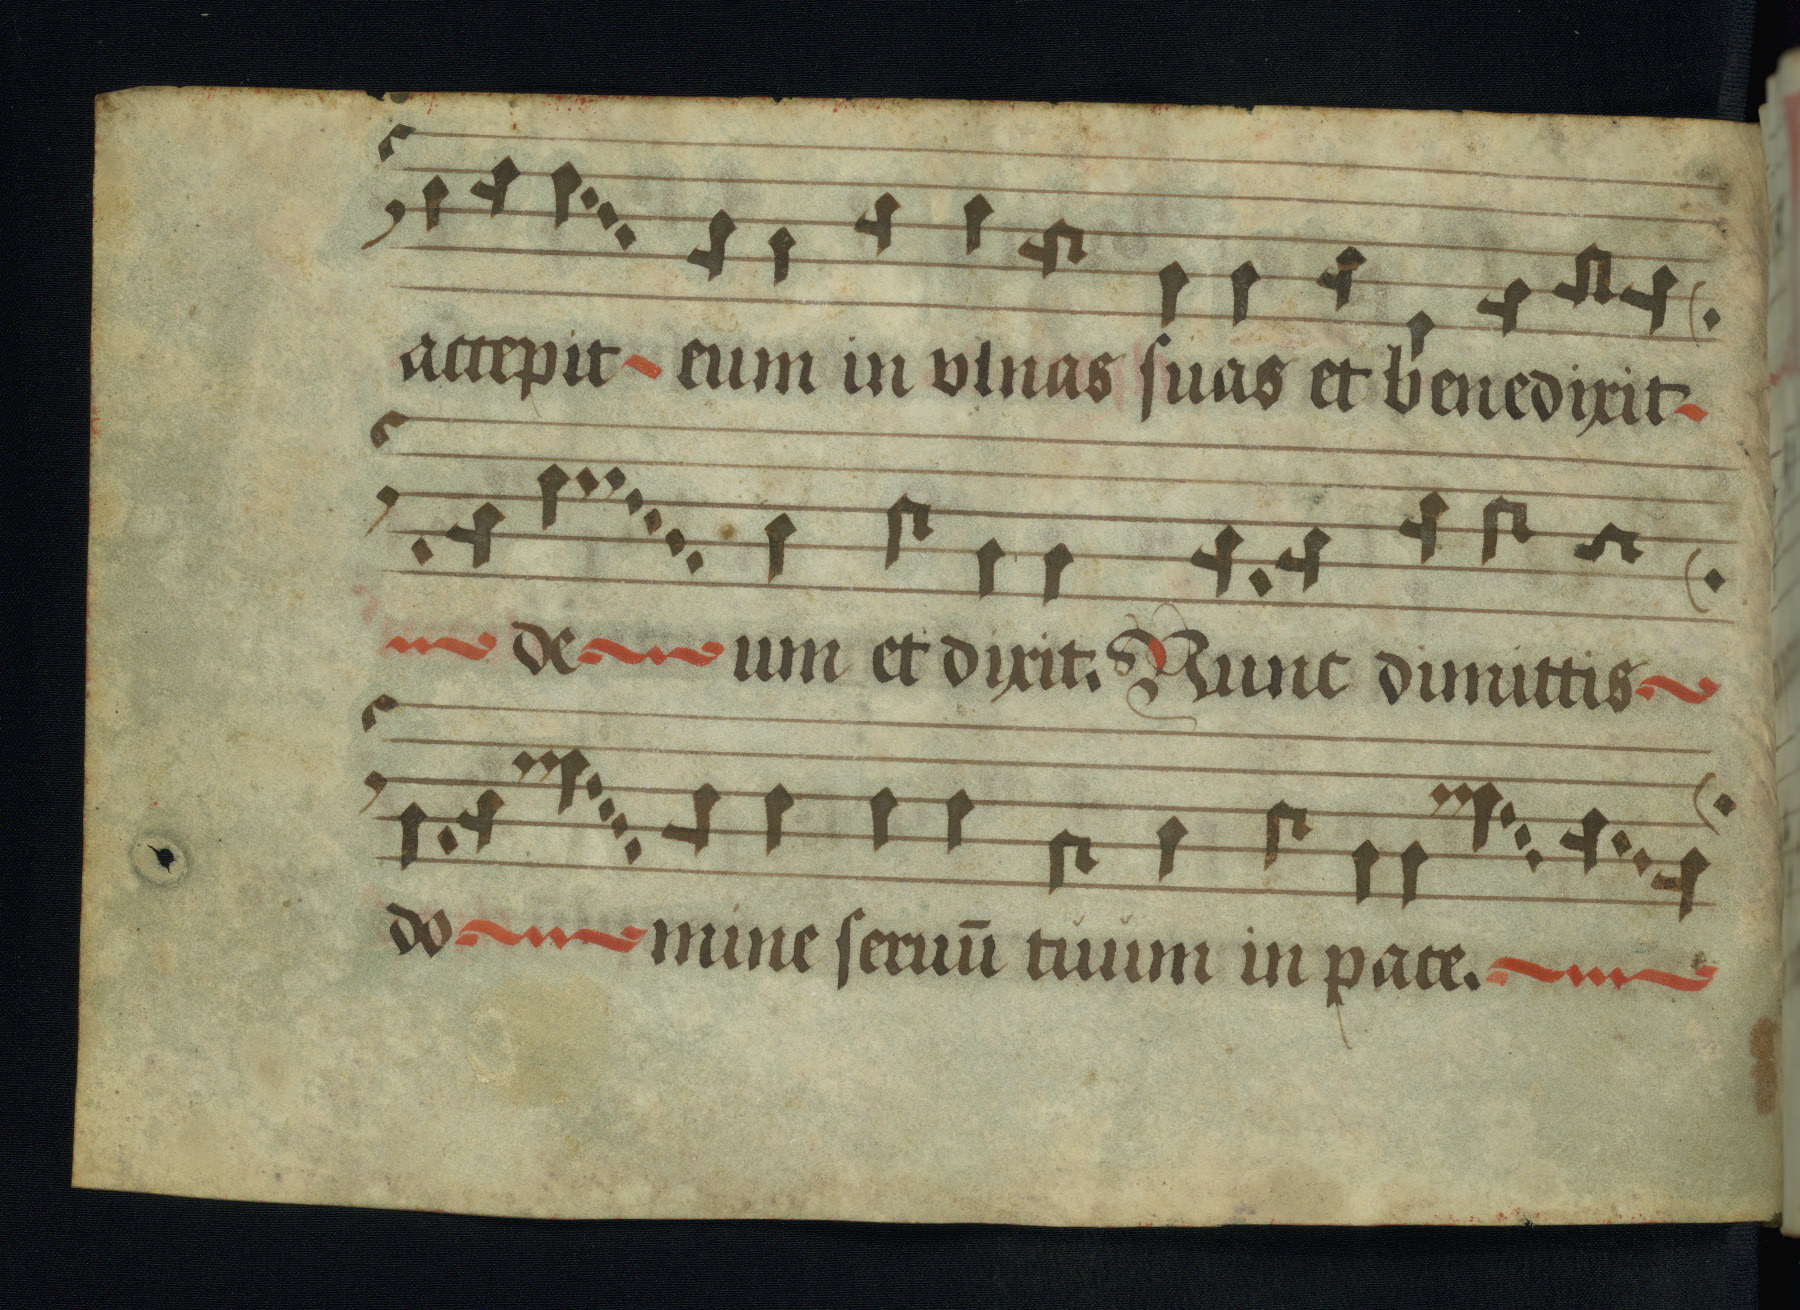 accepit eum in vlnas suas et benedixit
de um et dixit. Nunc dimittis
do mine seruū tuum in pace.